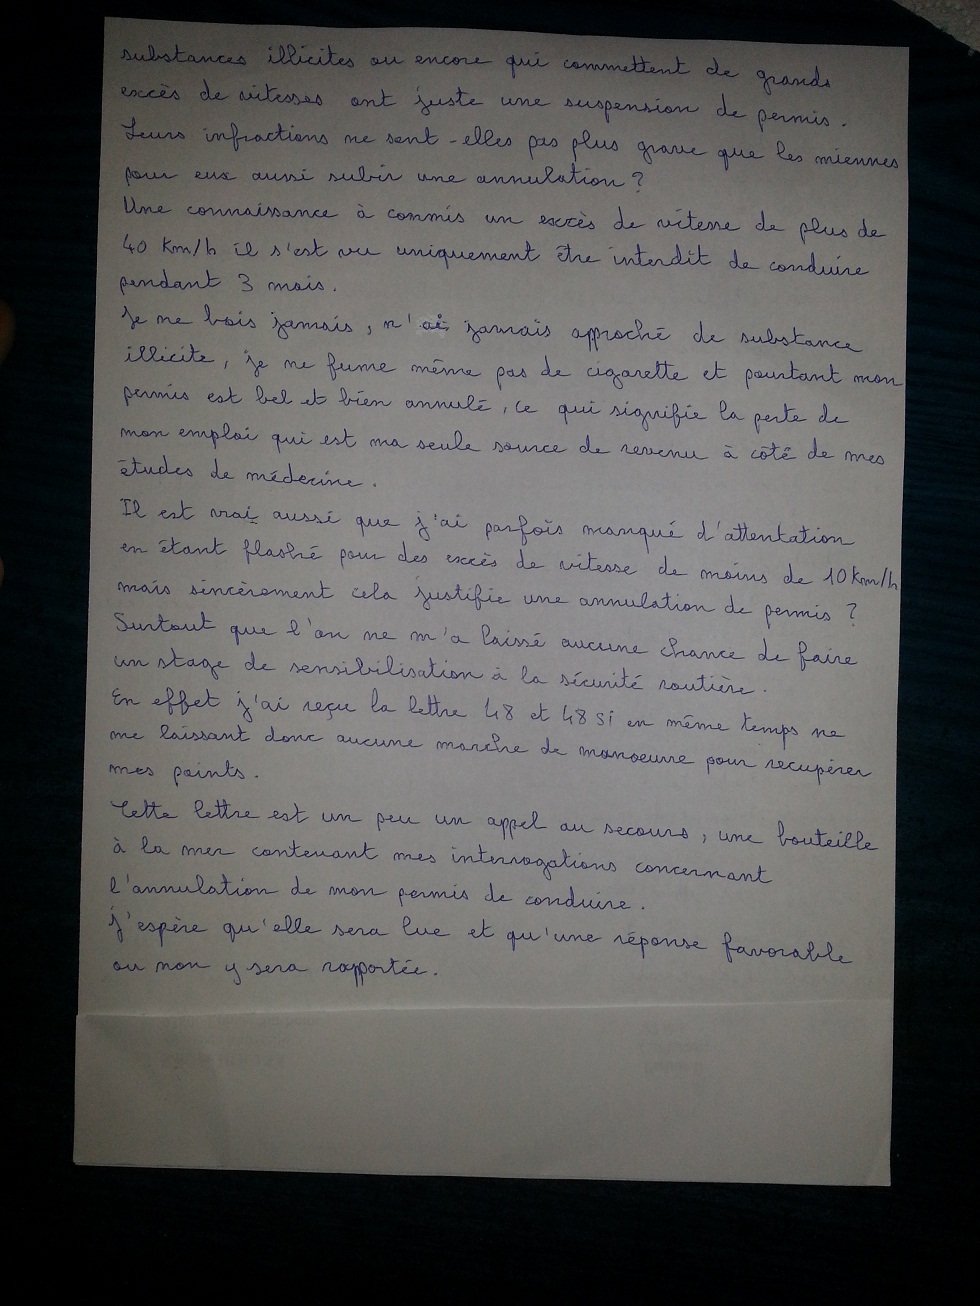 substances illicites ou encore qui commettent de grands
excès de vitesses ont juste une suspension de permis.
Leurs infractions ne sont-elles pas plus grave que les miennes
pour eux aussi subir une annulation ?
Une connaissance à commis un excès de vitesse de plus de
40 km/h il s'est vu uniquement être interdit de conduire
pendant 3 mois.
Je ne bois jamais, n'ai jamais approché de substance
illicite, je ne fume même pas de cigarette et pourtant mon
permis est bel et bien annulé, ce qui signifie la perte de
mon emploi qui est ma seule source de revenu à côté de mes
études de médecine.
Il est vrai aussi que j'ai parfois manqué d'attentation
en étant flashé pour des excès de vitesse de moins de 10 km/h
mais sincèrement cela justifie une annulation de permis ?
Surtout que l'on ne m'a laissé aucune chance de faire
un stage de sensibilisation à la sécurité routière.
En effet j'ai reçu la lettre 48 et 48 si en même temps ne
me laissant donc aucune marche de manoeuvre pour recupérer
mes points.
Cette lettre est un peu un appel au secours, une bouteille
à la mer contenant mes interrogations concernant
l'annulation de mon permis de conduire.
j'espère qu'elle sera lue et qu'une réponse favorable
ou non y sera rapportée.